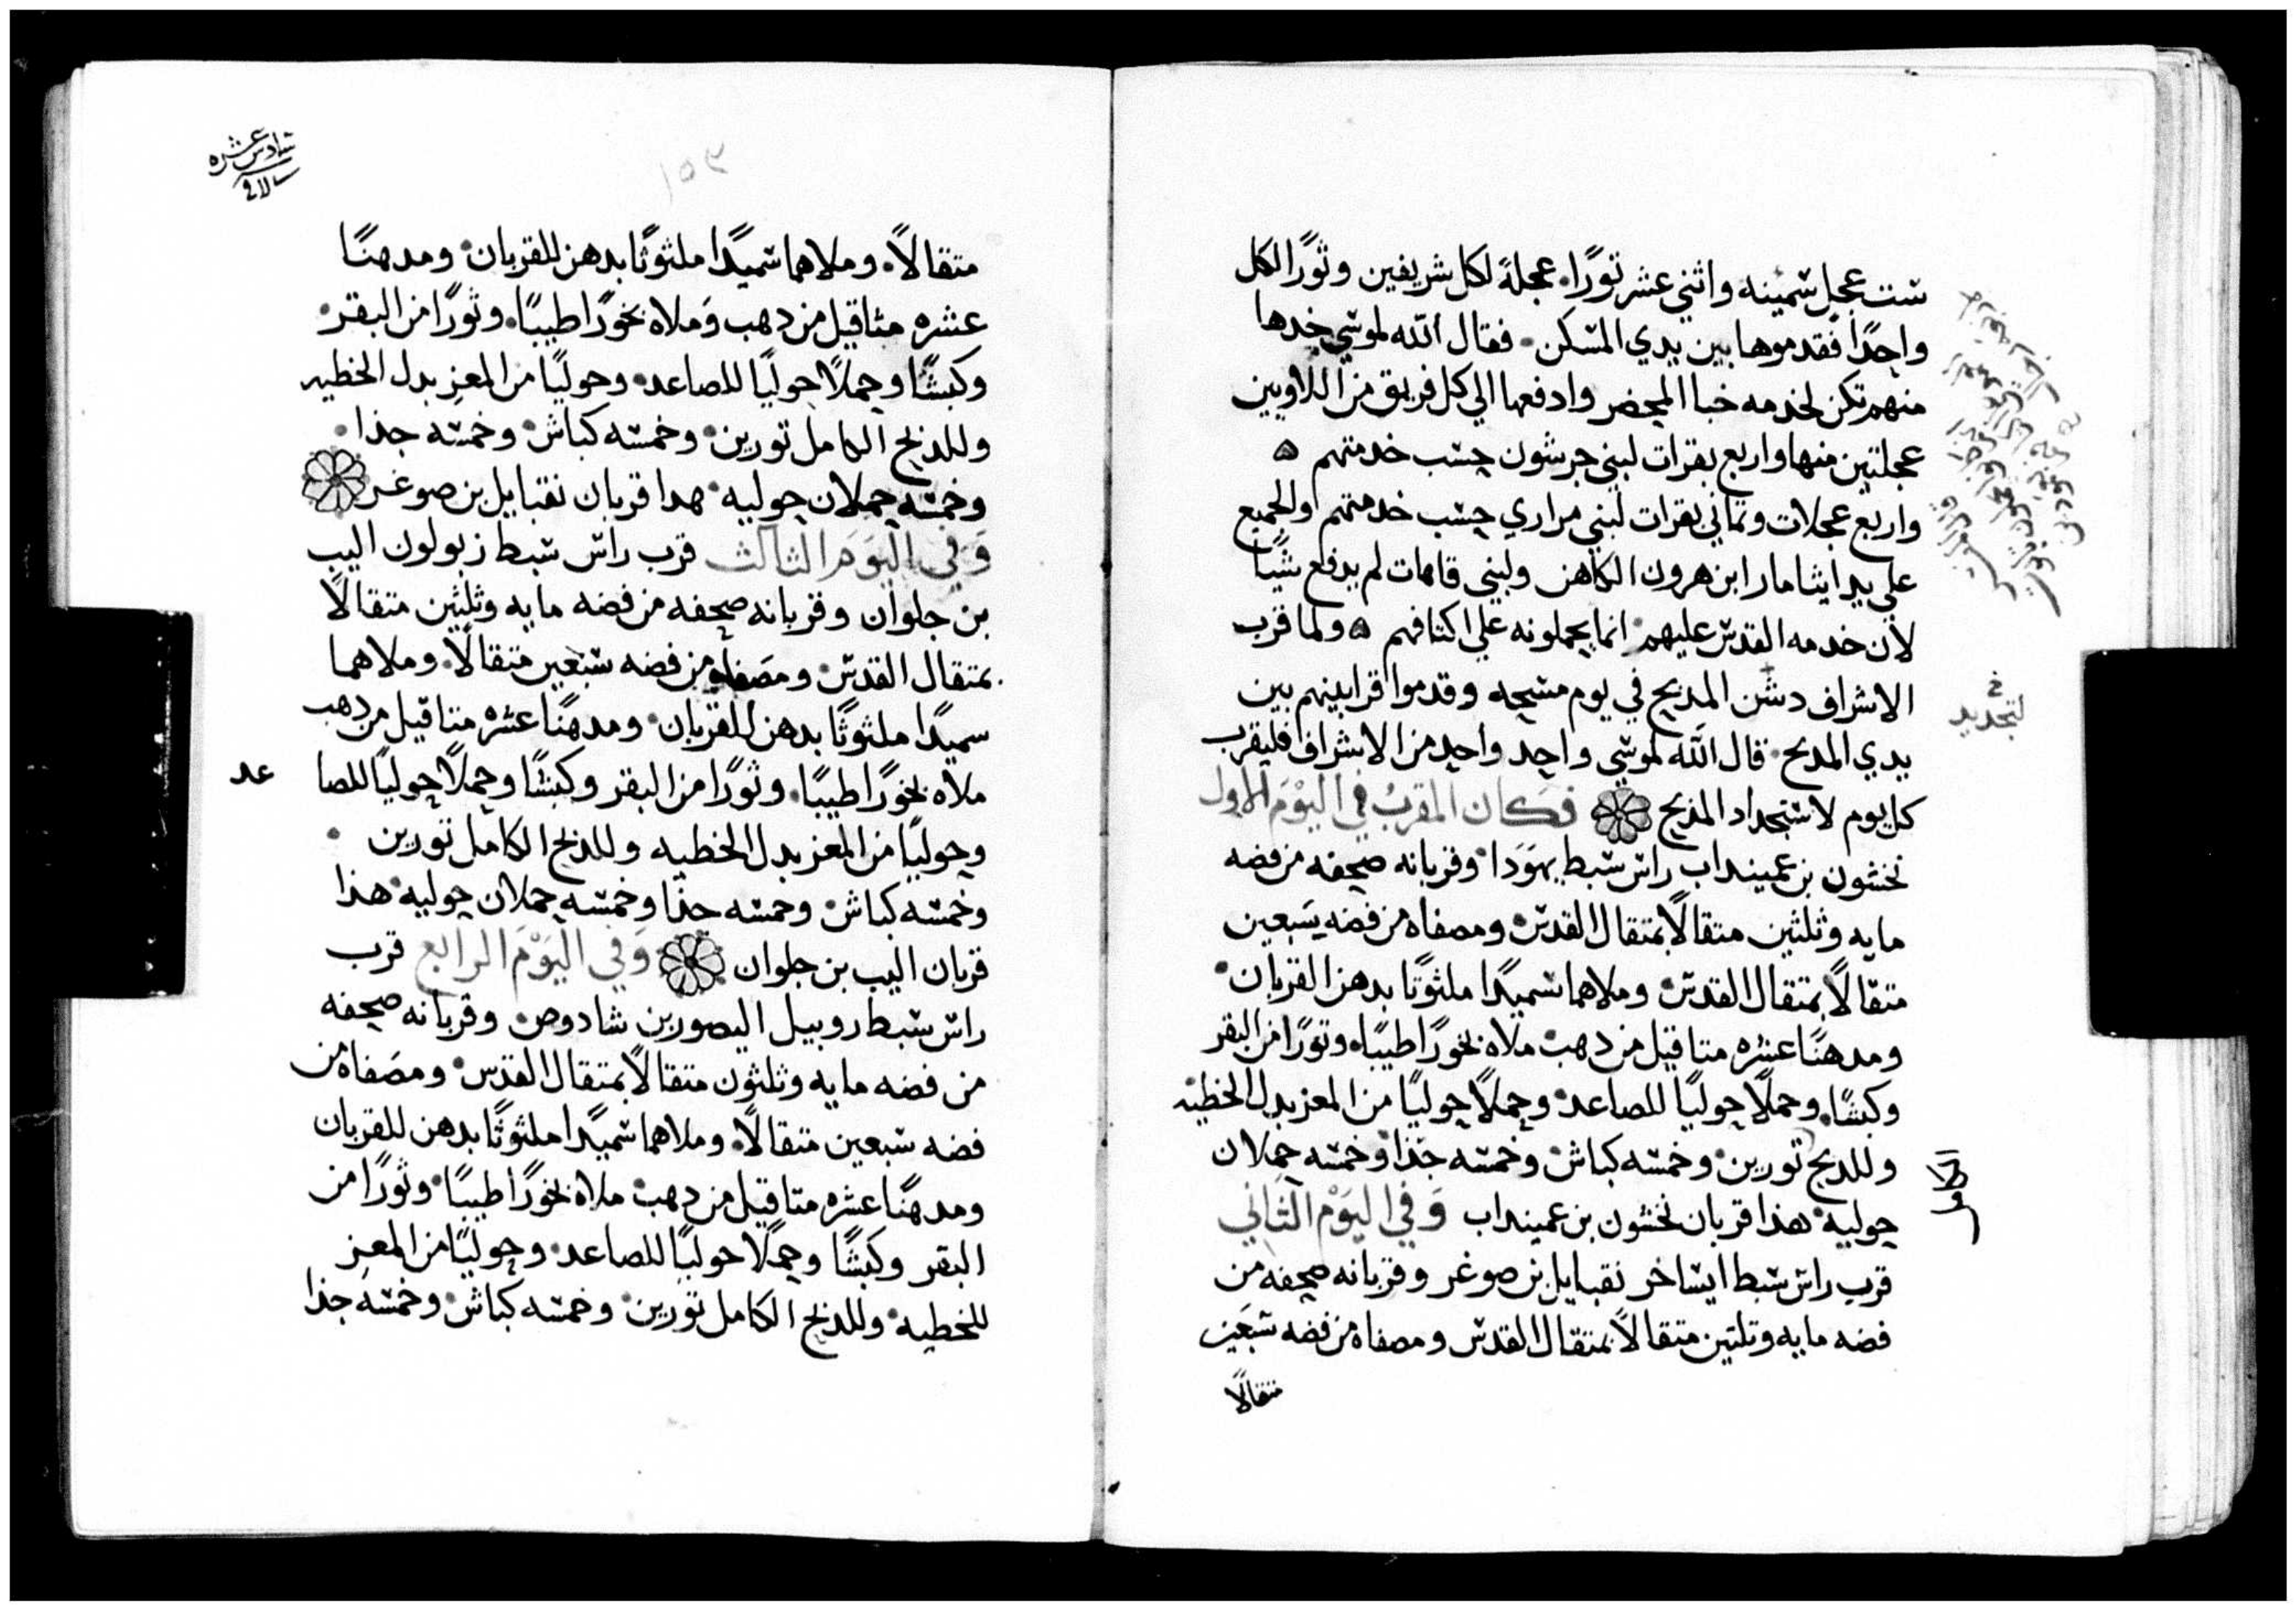 ست عجل سمينه واثني عشر ثورًا. عجلة لكل شريفين وثورًا لكل
واحدًا فقدموها بين يدي المسكن. فقال الله لموسي خدها
منهم تكن لخدمه خبا المحضر وادفعها الي كل فريق من اللاويين
عجلتين منها واربع بقرات لبني جرشون حسب خدمتهم ه
واربع عجلات وثماني بقرات لبني مراري حسب خدمتهم والجميع
علي يد ايثامار ابن هرون الكاهن ولبني قاهات لم يدفع شيًا
لان خدمه القدس عليهم. انما يحملونه علي اكتافهم ه ولما قرب
الاشراف دشن المدبح في يوم مسحه وقدموا قرابينهم بين
لتجديد
يدي المدبح. قال الله لموسي واحد واحد من الاشراف فليقرب
كل يوم لاستجداد المذبح فكان المقرب في اليوم الاول
نخشون بن عميناداب راس سبط يهودا. وقربانه صحفه من فضه
مايه وثلثين متقالاً بمتقال القدس. ومصفاه من فضه سبعين
متقالاً بمتقال القدس. وملاهما سميدًا ملثوتًا بدهن القربان.
ومدهنًا عشره متاقيل من دهب. ملاه بخورًا طيبًا. وثورًا من البقر
وكبشًا. وحملاً حوليًا للصاعد. وحملاً حوليًا من المعز بدل الخطيه
وللدبح تورين. وخمسه كباش. وخمسه جذا وخمسه حملان
الكامل
حوليه. هذا قربان نخشون بن عمينداب وفي اليوم الثاني
قرب راس سبط ايساخر نقبايل بن صوغر وقربانه صحفه من
فضه مايه وتلتين متقالاً بمتقال القدس ومصفاه من فضه سبعين
متقالاً
سادس عشره
١٥٣
متقالاً. وملاهما سميدًا ملثوثًا بدهن للقربان. ومدهنًا
عشره مثاقيل من دهب وملاه بخورًا طيبًا. وثورًا من البقر.
وكبشًا وحملاً حوليًا للصاعد. وحوليًا من المعز بدل الخطيه
وللدبح الكامل تورين. وخمسه كباش. وخمسه جذا.
وخمسه حملان حوليه. هدا قربان نقبايل بن صوغر
وفي اليوم الثالث قرب راس سبط زبولون اليب
بن حلوان وقربانه صحفه من فضه مايه وثلثين متقالاً
بمتقال القدس. ومصفاه من فضه سبعين متقالاً. وملاهما
سميدًا ملثوثًا بدهن للقربان. ومدهنًا عشره متاقيل من دهب
ملاه بخورًا طيبًا. وثورًا من البقر وكبشًا وحملاً حوليًا للصا عد
وحوليًا من المعز بدل الخطيه وللذبح الكامل تورين.
وخمسه كباش. وخمسه جذا وخمسه حملان حوليه. هذا
قربان اليب بن حلوان وفي اليوم الرابع قرب
راس سبط روبيل اليصور بن شادوص. وقربانه صحفه
من فضه مايه وثلثون متقالاً بمتقال القدس. ومصفاه من
فضه سبعين متقالاً. وملاهما سميدًا ملثوثًا بدهن للقربان
ومدهنًا عشره متاقيل من دهب. ملاه بخورًا طيبًا. وثورًا من
البقر وكبشًا وحملاً حوليًا للصاعد. وحوليًا من المعز
للخطيه. وللذبح الكامل تورين. وخمسه كباش. وخمسه جذا